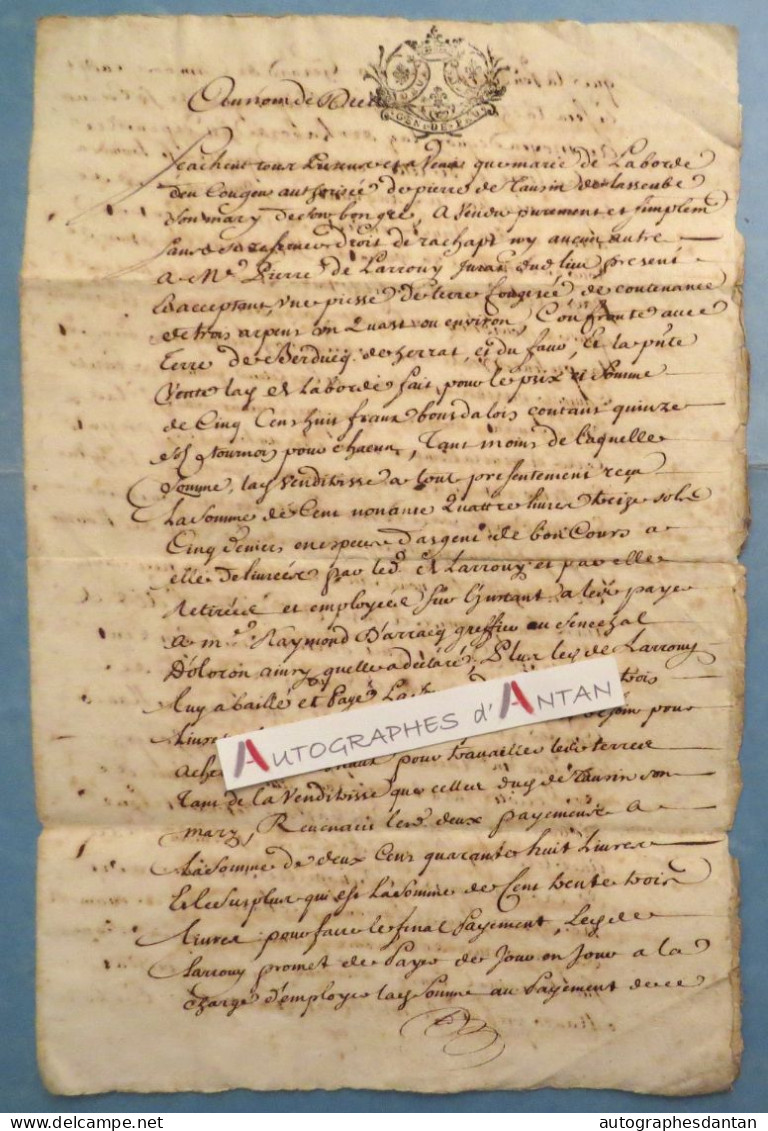 Au nom de Dieu
GEN·DE·PAU
Sachent tous presens et a Venir que marie de Laborde
don Cougou authorisée de pierre de Tausin de lasseube
son mary de son bon gré, a Vendu purement et simplem
sans reserve droit de rachapt ny aucun autre
A Mᵉ Pierre de Larrouy Jurat dud lieu present
Et acceptant, vne piesse de terre fougisée de contenance
de trois arpens un Quart ou environ, Confronte avec
terre de Berducq de serrat, et du faur, Et la pnte
Vente lad de Laborde fait pour le prix et somme
de Cinq Cens huit francx bourdalois contans quinze
sols tournois pour chacun, Tant moins de laquelle
somme, lad Venditrisse a tout presentement reçu
La somme de Cent nonante Quattre livres treize sols
Cinq deniers en espece d'argent de bon Cours a
elle delivrée par led de Larrouy et par elle
Retirée et employée sur l'instant a les paye
A mᵉ Raymond Darracq greffier au Senechal
D'oloron ainsy quelle a déclaré, Plus led de Larrouy
luy a baillé et payé La trois
Livres besoin pour
Ache pour travailler les terres
Tant de la Venditrisse que celles dud de Tausin son
mary, Revenans les deux payemens A
La somme de deux Cens quarante huit Livres
Et le surplus qui est La somme de Cent trente trois
Livres pour faire le final Payement, Led de
Larrouy promet de Paye de Jour en Jour a la
charge d'employe lad somme au Payement de ce
AUTOGRAPHES d'ANTAN
autographesdantan